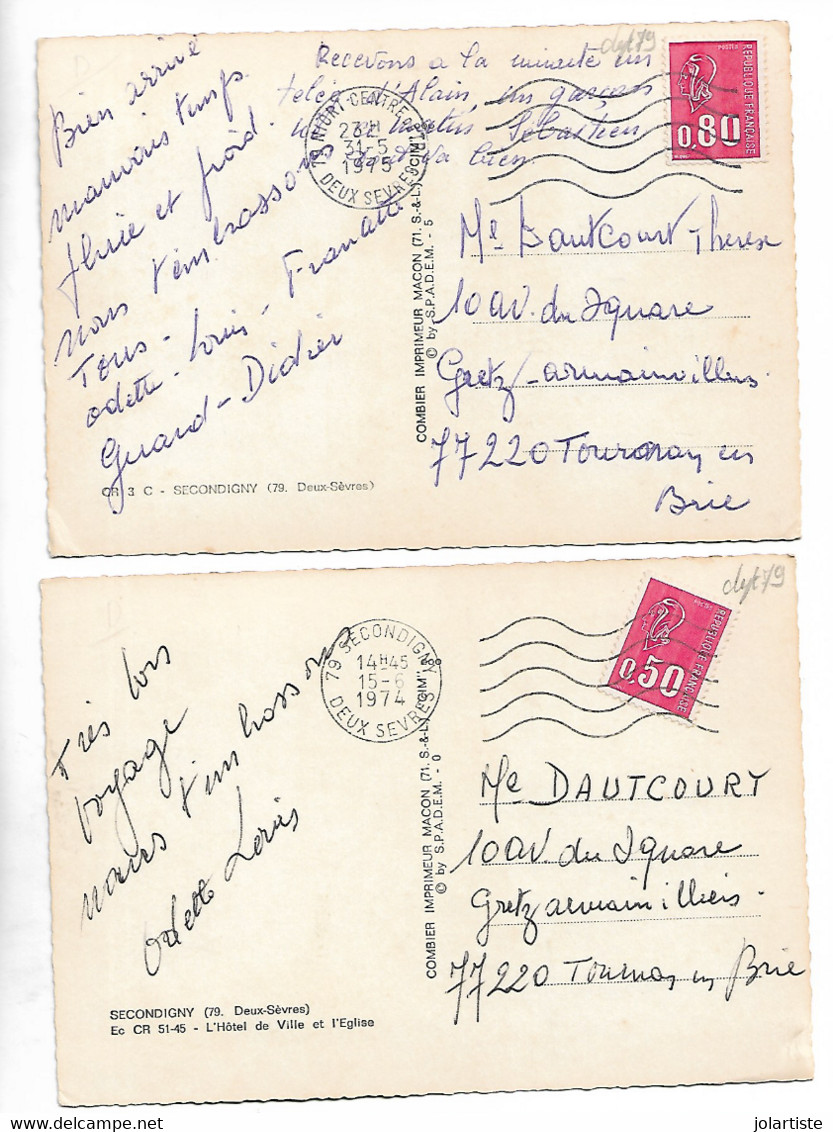 dept 79
Recevons a la minute un
télég d'Alain, un garçon
Sébastien
tout va bien
Bien arrivé
mauvais temps
pluie et froid.
nous t'embrassons
Tous - Louis - Franck
odette -
Gerard - Didier
79 NIORT CENTRE
23H
31-5
1975
DEUX SEVRES
REPUBLIQUE FRANÇAISE
POSTES
0,80
COMBIER IMPRIMEUR MACON (71. S.-&-L.) "CIM"
© by S.P.A.D.E.M. - 5
Me Dautcourt Therese
10 av. du Square
Gretz-armainvilliers.
77220 Tournan en
Brie
CR 3 C - SECONDIGNY (79. Deux-Sèvres)
dept 79
79 SECONDIGNY
14H45
15-6
1974
DEUX SEVRES
REPUBLIQUE FRANÇAISE
POSTES
0,50
COMBIER IMPRIMEUR MACON (71. S.-&-L.) "CIM"
© by S.P.A.D.E.M. - 0
Très bons
voyage
nous t'embrassons
odette Louis
Me DAUTCOURT
10 av. du Square
Gretz armainvilliers.
77220 Tournan en Brie
SECONDIGNY (79. Deux-Sèvres)
Ec CR 51-45 - L'Hôtel de Ville et l'Eglise
jolartiste